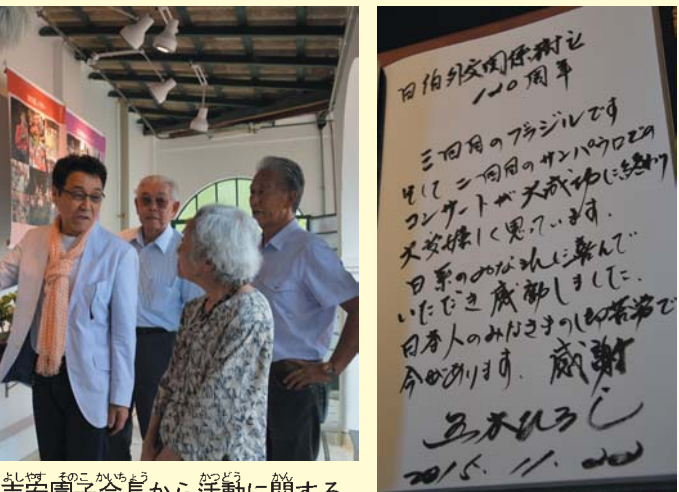 日伯外交関係樹立
120周年
三回目のブラジルです
そして二回目のサンパウロでの
コンサートが大成功に終わり
大変嬉しく思っています.
日系のみなさんに喜んで
いただき感動しました.
日本人のみなさまのご苦労で
今があります. 感謝
五木ひろし
2015. 11.
よしやす そのこ かいちょう かつどう かん
吉安園子会長から活動に関する